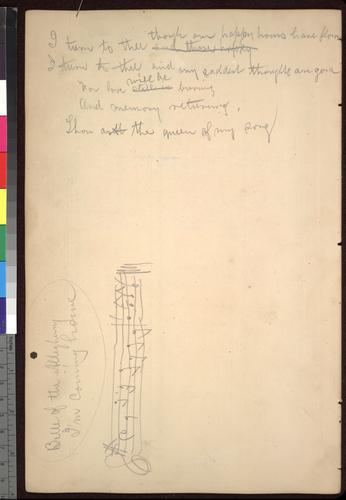 I turn to thee though our happy hours have flown
I turn to thee and my saddest thoughts are gone
For love will be burning
And memory returning,
Thou art the queen of my song
Belle of the Allegheny
I'm coming home